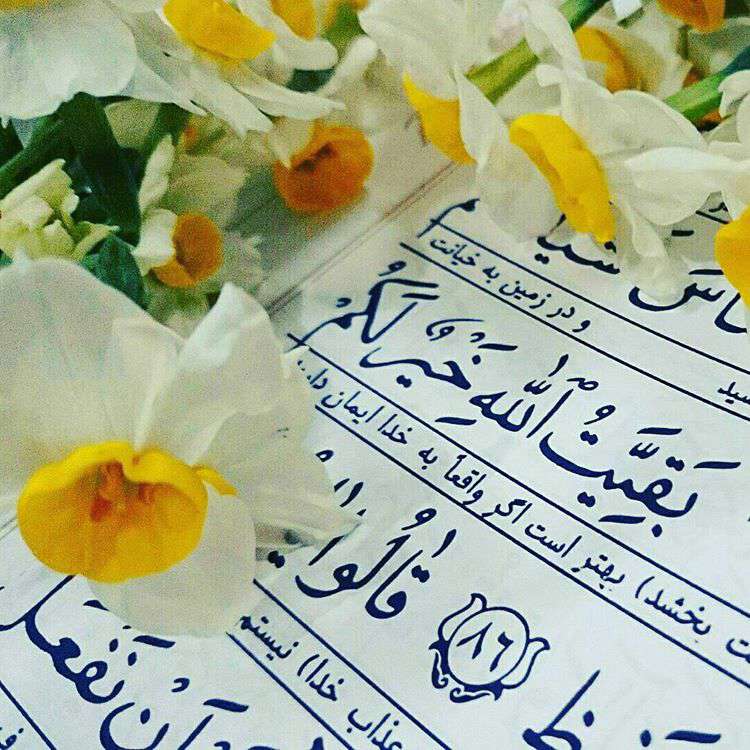 و در زمین به خیانت
بَقِیَّتُ اللّٰهِ خَیْرٌ لَکُمْ
بخشد) بهتر است اگر واقعاً به خدا ایمان
۸۶ قالُوا
عذاب خدا) نیستم
اَنْ نَفْعَلَ